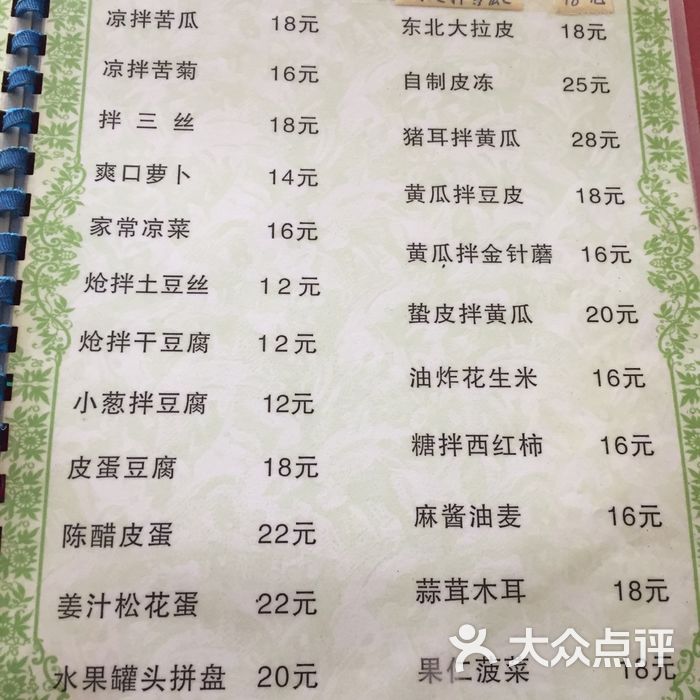 凉拌苦瓜 18元
凉拌苦菊 16元
拌三丝 18元
爽口萝卜 14元
家常凉菜 16元
炝拌土豆丝 12元
炝拌干豆腐 12元
小葱拌豆腐 12元
皮蛋豆腐 18元
陈醋皮蛋 22元
姜汁松花蛋 22元
水果罐头拼盘 20元
东北大拉皮 18元
自制皮冻 25元
猪耳拌黄瓜 28元
黄瓜拌豆皮 18元
黄瓜拌金针蘑 16元
蛰皮拌黄瓜 20元
油炸花生米 16元
糖拌西红柿 16元
麻酱油麦 16元
蒜茸木耳 18元
果仁菠菜 18元
大众点评